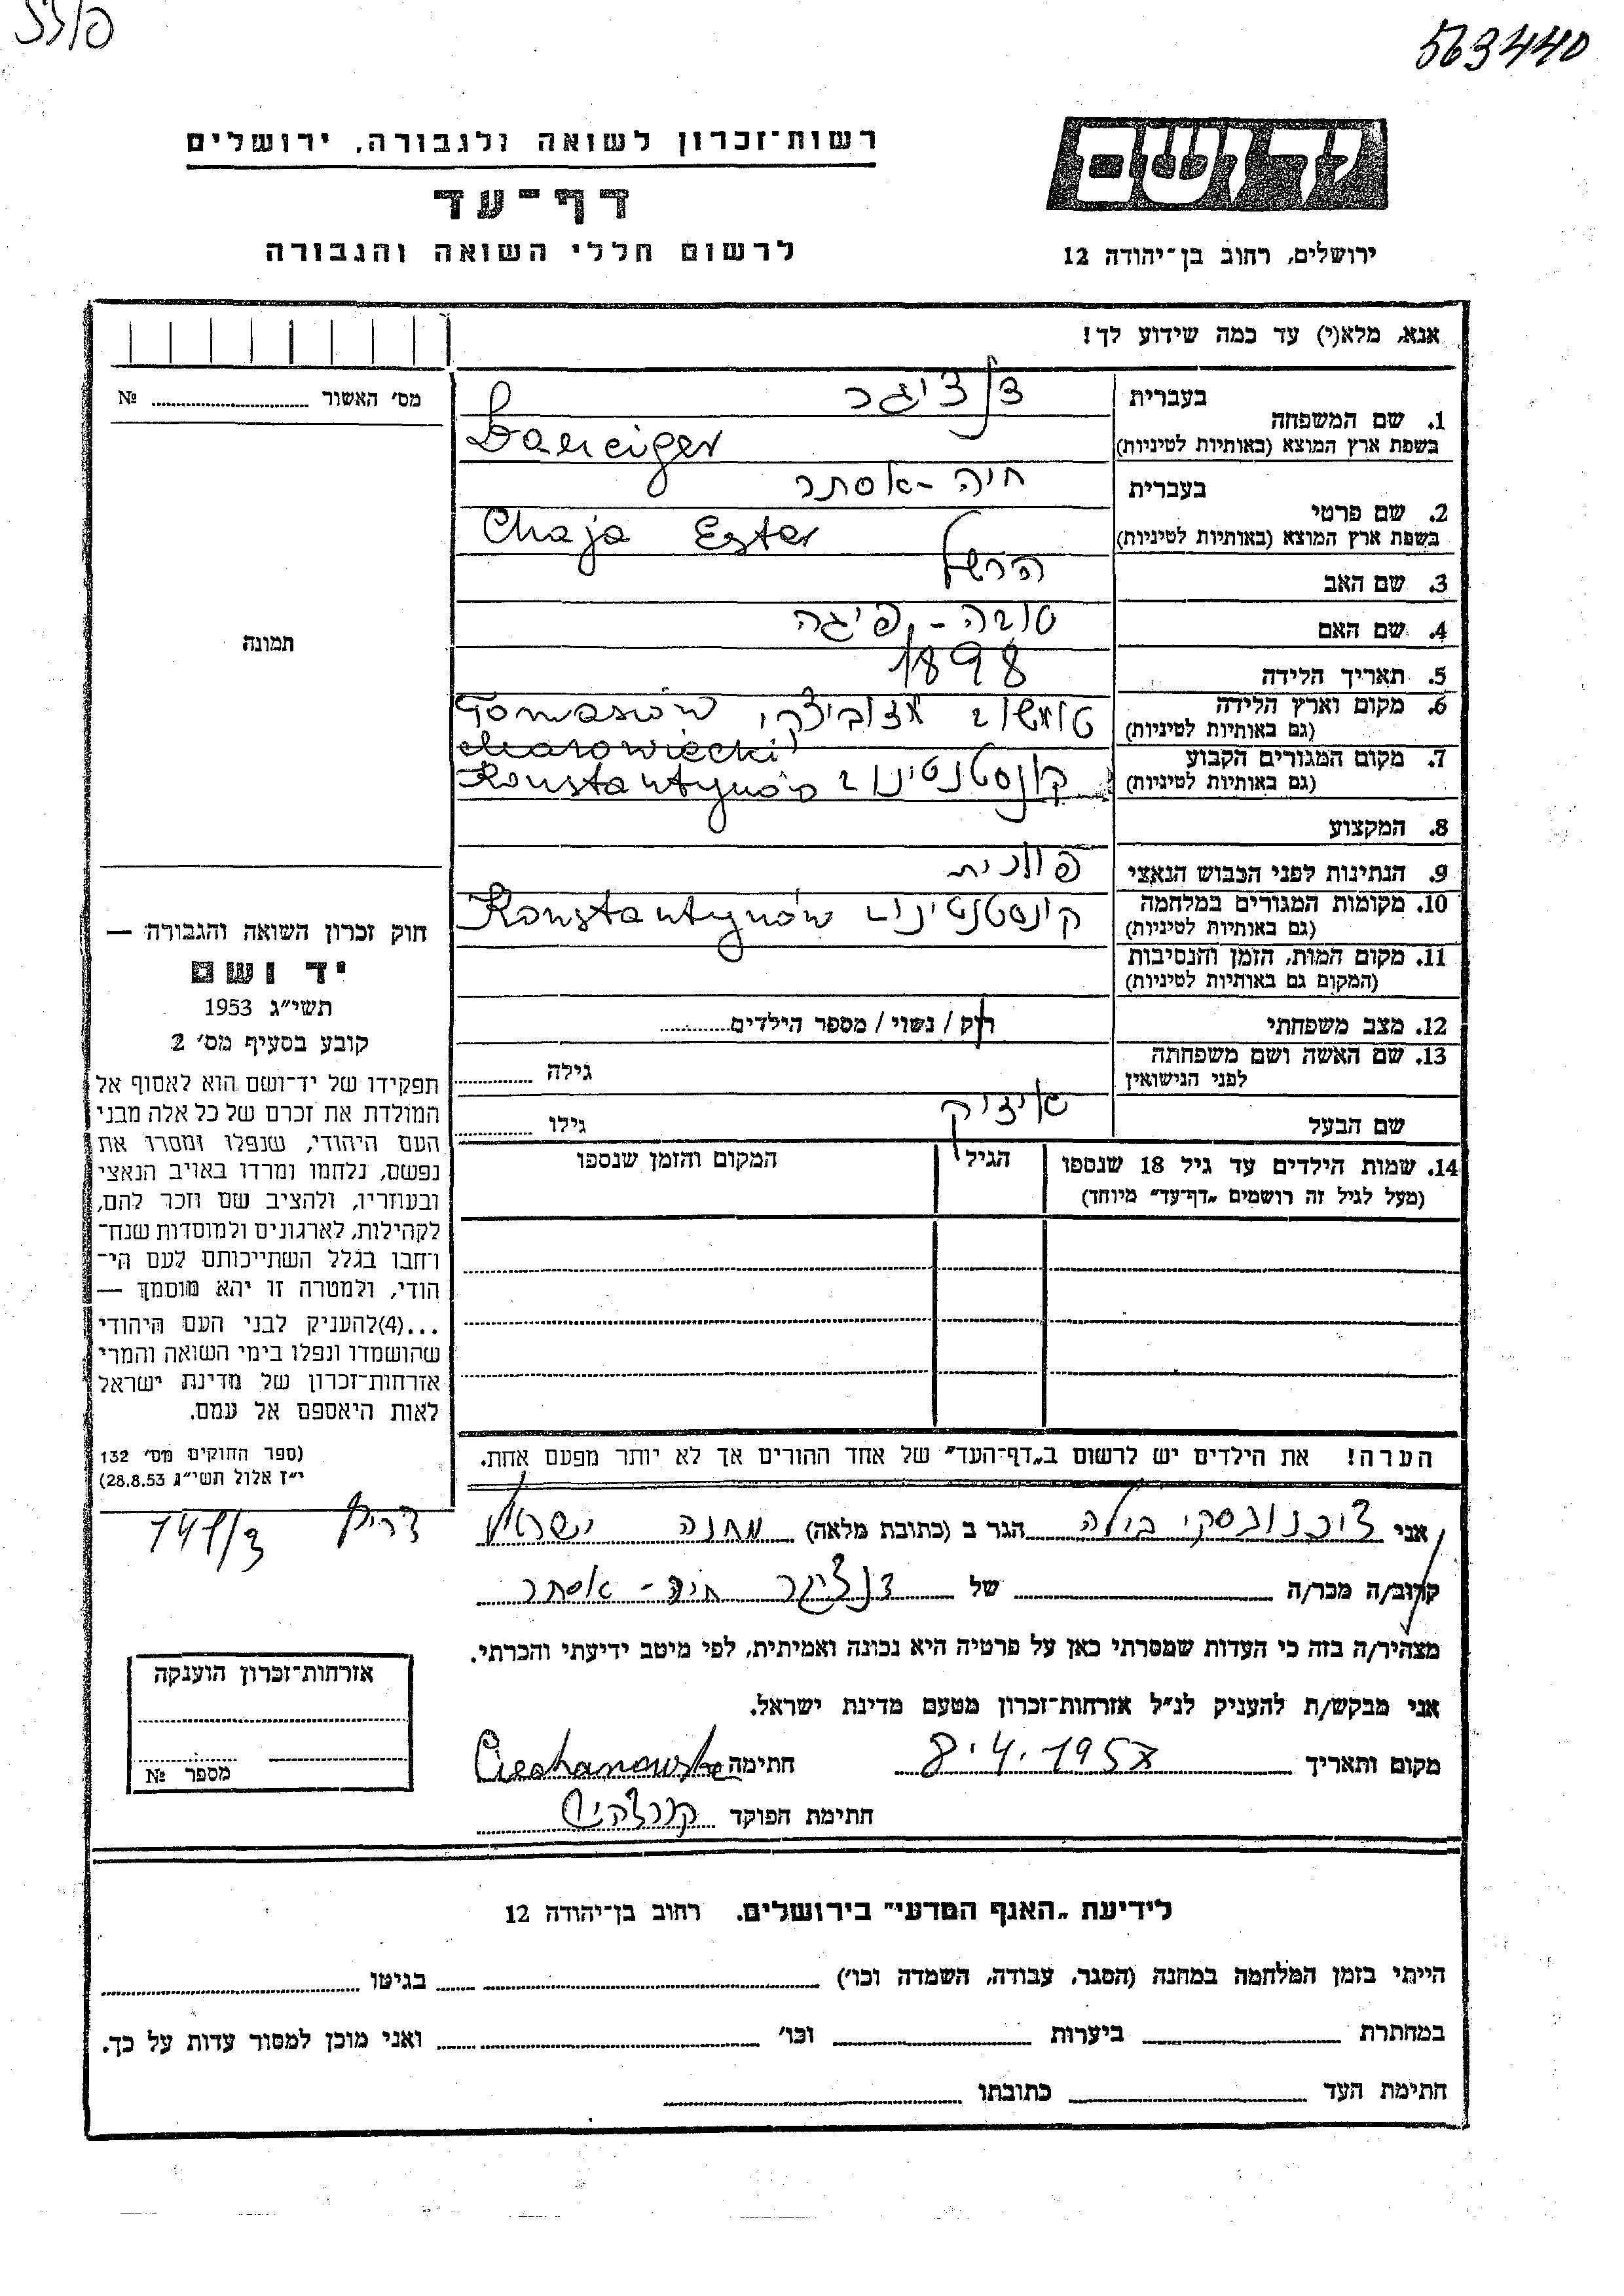 563440
רשות־זכרון לשואה ולגבורה, ירושלים
דף־עד
לרשום חללי השואה והגבורה
יד ושם
ירושלים, רחוב בן־יהודה 12
אנא, מלא(י) עד כמה שידוע לך!
מס׳ האשור № 
1. שם המשפחה
בעברית דנציגר
בשפת ארץ המוצא (באותיות לטיניות) Danciger
2. שם פרטי
בעברית חיה-אסתר
בשפת ארץ המוצא (באותיות לטיניות) Chaja Ester
3. שם האב הרשל
4. שם האם טובה-פיגה
5. תאריך הלידה 1898
6. מקום וארץ הלידה טומשוב מזוביצקי Tomaszów
(גם באותיות לטיניות) Mazowiecki
7. מקום המגורים הקבוע קונסטנטינוב Konstantynów
(גם באותיות לטיניות)
8. המקצוע
9. הנתינות לפני הכבוש הנאצי פולנית
10. מקומות המגורים במלחמה קונסטנטינוב Konstantynów
(גם באותיות לטיניות)
11. מקום המות, הזמן והנסיבות
(המקום גם באותיות לטיניות)
12. מצב משפחתי רוק / נשוי / מספר הילדים
13. שם האשה ושם משפחתה
לפני הנישואין גילה
שם הבעל איזיק גילו
14. שמות הילדים עד גיל 18 שנספו הגיל המקום והזמן שנספו
(מעל לגיל זה רושמים „דף־עד״ מיוחד)
הערה! את הילדים יש לרשום ב„דף־העד״ של אחד ההורים אך לא יותר מפעם אחת.
תמונה
חוק זכרון השואה והגבורה —
יד ושם
תשי״ג 1953
קובע בסעיף מס׳ 2
תפקידו של יד־ושם הוא לאסוף אל
המולדת את זכרם של כל אלה מבני
העם היהודי, שנפלו ומסרו את
נפשם, נלחמו ומרדו באויב הנאצי
ובעוזריו, ולהציב שם וזכר להם,
לקהילות, לארגונים ולמוסדות שנח־
רחבו בגלל השתייכותם לעם הי־
הודי, ולמטרה זו יהא מוסמך —
...(4)להעניק לבני העם היהודי
שהושמדו ונפלו בימי השואה והמרי
אזרחות־זכרון של מדינת ישראל
לאות היאספם אל עמם.
(ספר החוקים מס׳ 132
י״ז אלול תשי״ג 28.8.53)
אני צוכנובסקי בילה הגר ב (כתובת מלאה) מחנה ישראל צריף
קרוב/ה מכר/ה של דנציגר חיה-אסתר
מצהיר/ה בזה כי העדות שמסרתי כאן על פרטיה היא נכונה ואמיתית, לפי מיטב ידיעתי והכרתי.
אני מבקש/ת להעניק לנ״ל אזרחות־זכרון מטעם מדינת ישראל.
מקום ותאריך 8.4.1957 חתימה Ciechanowska
חתימת הפוקד
אזרחות־זכרון הוענקה
מספר №
לידיעת „האגף המדעי״ בירושלים. רחוב בן־יהודה 12
הייתי בזמן המלחמה במחנה (הסגר, עבודה, השמדה וכו׳) בגיטו
במחתרת ביערות וכו׳ ואני מוכן למסור עדות על כך.
חתימת העד כתובתו